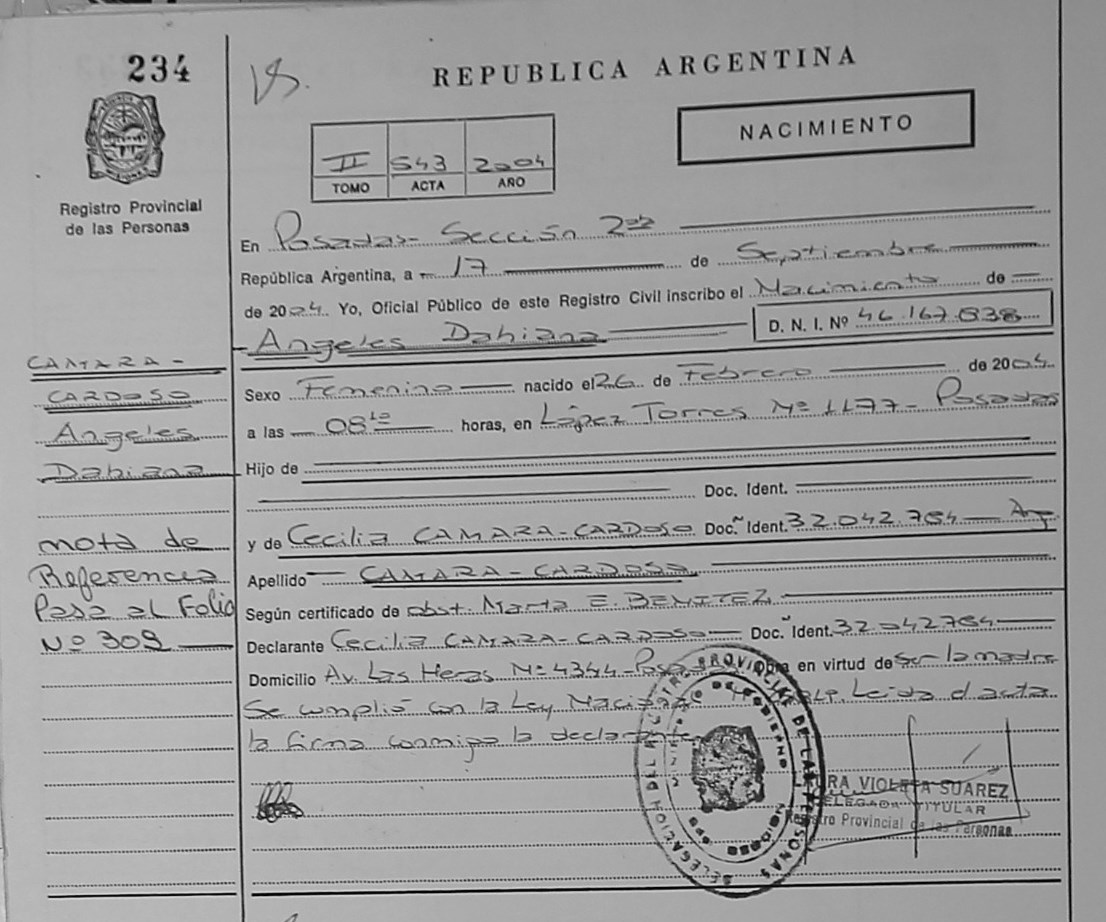 234
REPUBLICA ARGENTINA
NACIMIENTO
II 543 2004
TOMO ACTA AÑO
Registro Provincial
de las Personas
En Posadas- Sección 2da
República Argentina, a 17 de Septiembre
de 2004. Yo, Oficial Público de este Registro Civil inscribo el Nacimiento de
Angeles Dahiana D. N. I. Nº 46.167.838
Sexo Femenino nacido el 26 de Febrero de 2004
a las 08 horas, en López Torres Nº 1177- Posadas
Hijo de
Doc. Ident.
y de Cecilia CAMARA-CARDOSO Doc. Ident. 32.042.764 Arg
Apellido CAMARA-CARDOSO
Según certificado de obst. Marta E. BENITEZ
Declarante Cecilia CAMARA-CARDOSO Doc. Ident. 32.042764
Domicilio Av. Las Heras Nº 4344- Obra en virtud de ser la madre
Se cumplió con la Ley Leida el acta
la firma conmigo la declarante
CAMARA-
CARDOSO
Angeles
Dahiana
nota de
Referencia
Pasa al Folio
Nº 309
DELEGACION DEL REGISTRO PROVINCIAL DE LAS PERSONAS
VIOLETA SUAREZ
DELEGADA TITULAR
Registro Provincial de las Personas